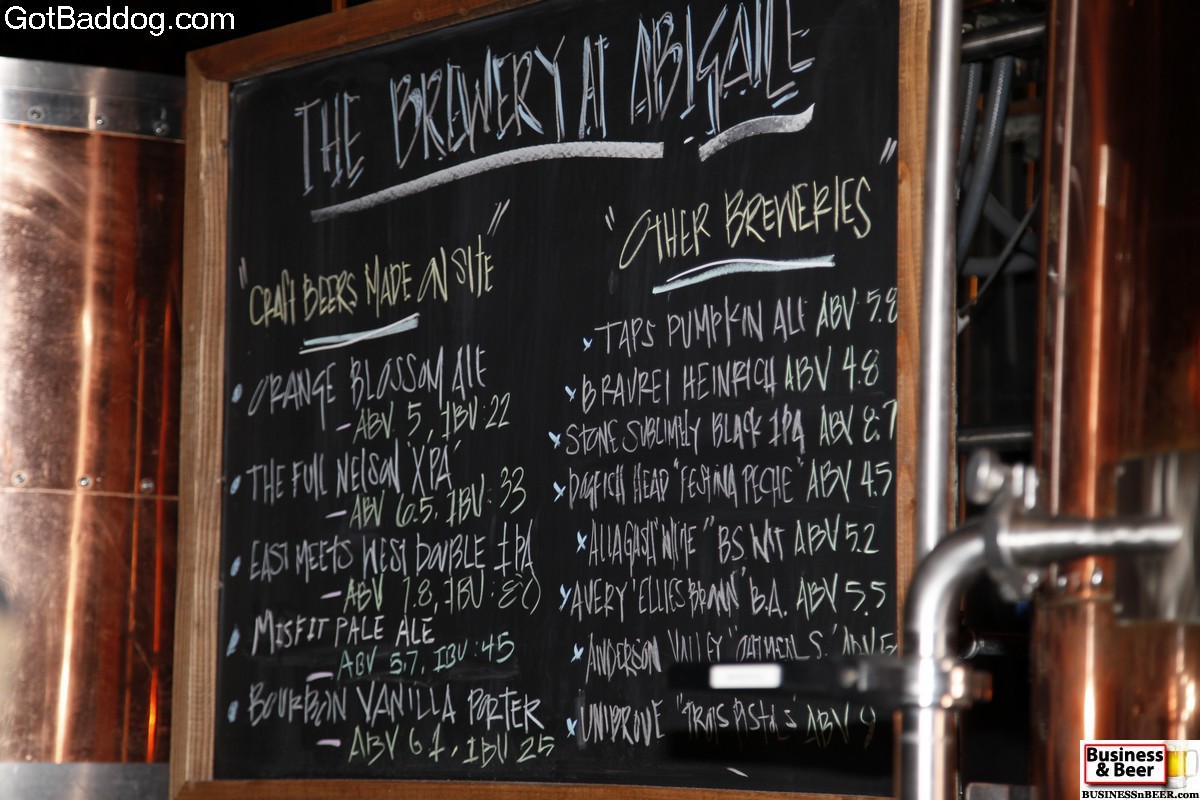 GotBaddog.com
THE BREWERY AT ABIGAILE
"CRAFT BEERS MADE ON SITE"
ORANGE BLOSSOM ALE
- ABV 5, IBU: 22
THE FULL NELSON 'XPA'
- ABV 6.5, IBU: 33
EAST MEETS WEST DOUBLE IPA
- ABV 7.8, IBU: 80
MISFIT PALE ALE
- ABV 5.7, IBU: 45
BOURBON VANILLA PORTER
- ABV 6.1, IBU 25
"OTHER BREWERIES"
x TAPS PUMPKIN ALE ABV 5.8
x BRAUREI HEINRICH ABV 4.8
x STONE SUBLIMELY BLACK IPA ABV 8.7
x DOGFISH HEAD "FESTINA PECHE" ABV 4.5
x ALLAGASH "WHITE" BS WIT ABV 5.2
x AVERY 'ELLIES BROWN' B.A. ABV 5.5
x ANDERSON VALLEY "OATMEAL S." ABV
x UNIBROUE "TROIS PISTOLS" ABV 9
Business
& Beer
BUSINESSnBEER.com